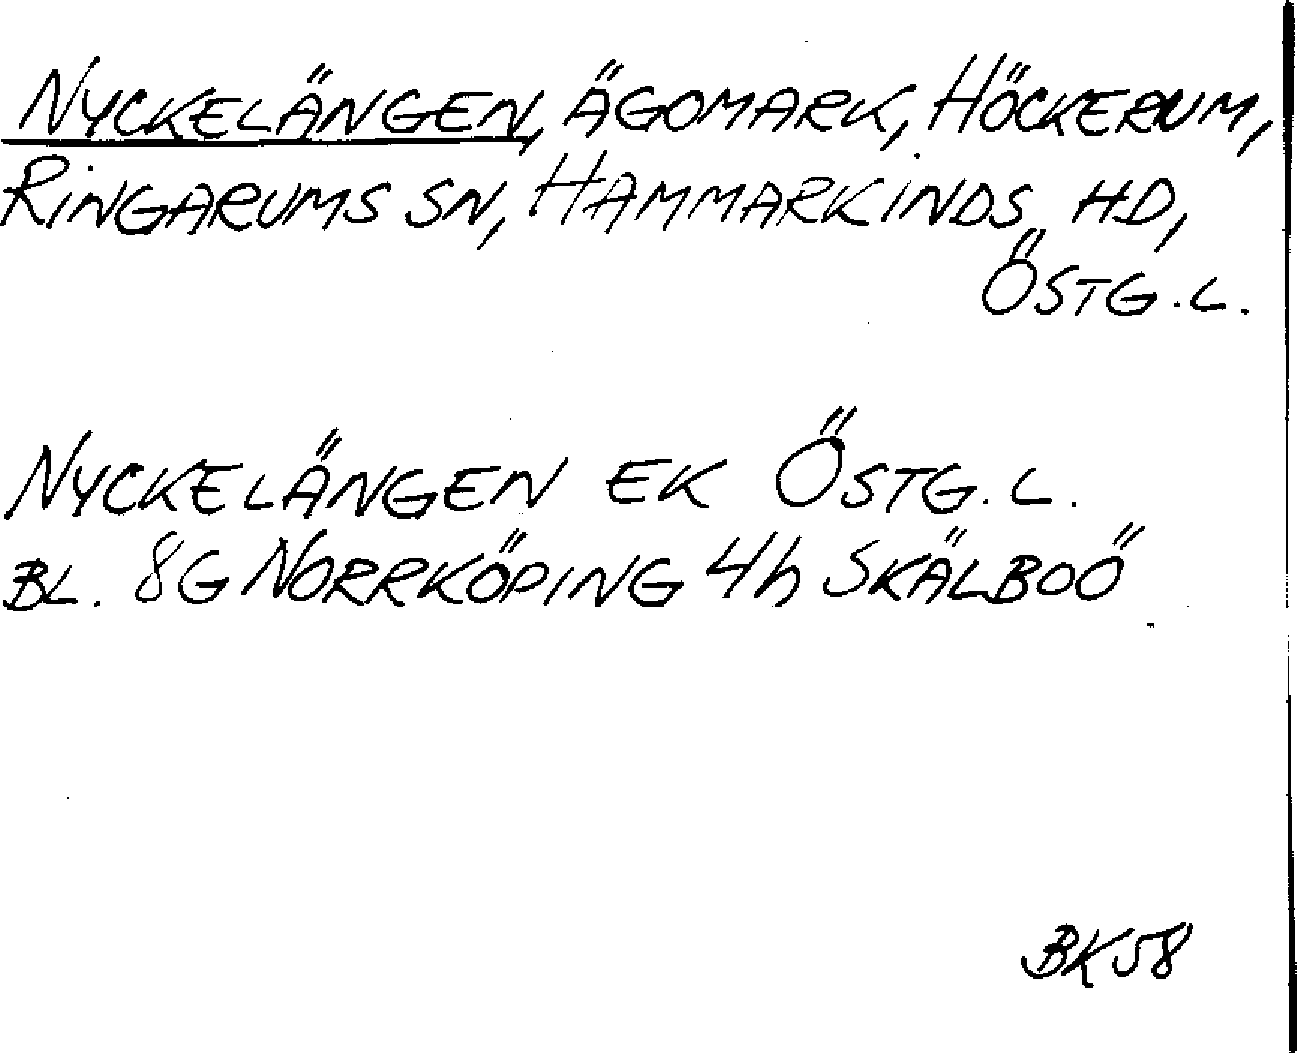 NYCKELÄNGEN, ÄGOMARK, HÖCKERUM,
RINGARUMS SN, HAMMARKINDS HD,
ÖSTG.L.
NYCKELÄNGEN EK ÖSTG.L.
BL. 8G NORRKÖPING 4h SKÄLBOÖ
BK58